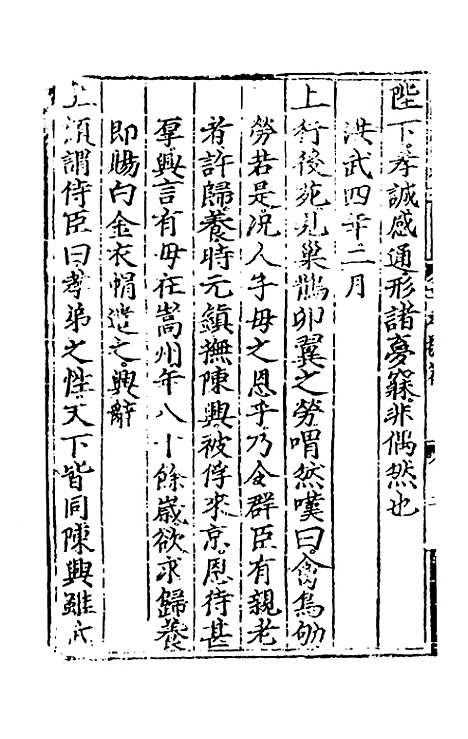 陛下孝誠感通形諸夢寐非偶然也
洪武四年二月
上行後苑見巢鵲卵翼之勞喟然嘆曰禽鳥劬
勞若是況人子母之恩乎乃令群臣有親老
者許歸養時元鎮撫陳興被俘來京恩待甚
厚興言有母在嵩州年八十餘歲欲求歸養
即賜白金衣帽遣之興辭
上 謂侍臣曰孝弟之性天下皆同陳興雖